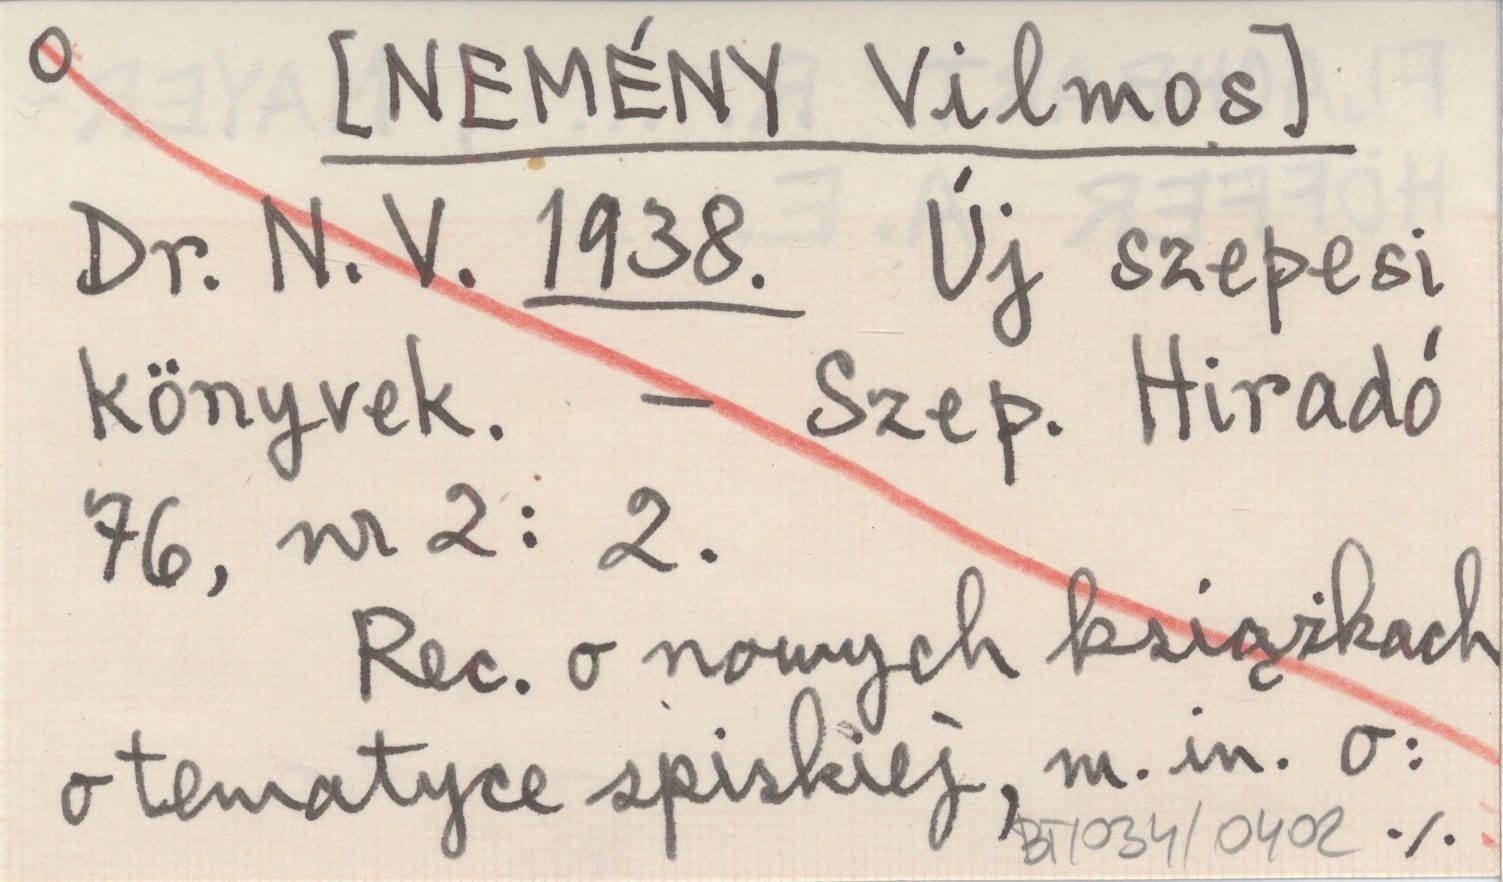 o [NEMÉNY Vilmos]
Dr. N. V. 1938. Új szepesi
könyvek. — Szep. Hiradó
76, nr 2: 2.
Rec. o nowych książkach
o tematyce spiskiej, m. in. o:
BT/034/0402 ./.